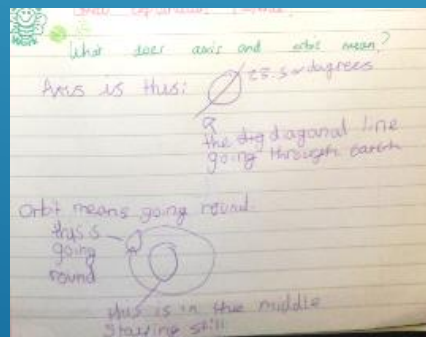 What does axis and orbit mean?
Axis is this: 23.5 degrees
the diagonal line
going through earth
Orbit means going round.
this is
going
round
this is in the middle
Staying still